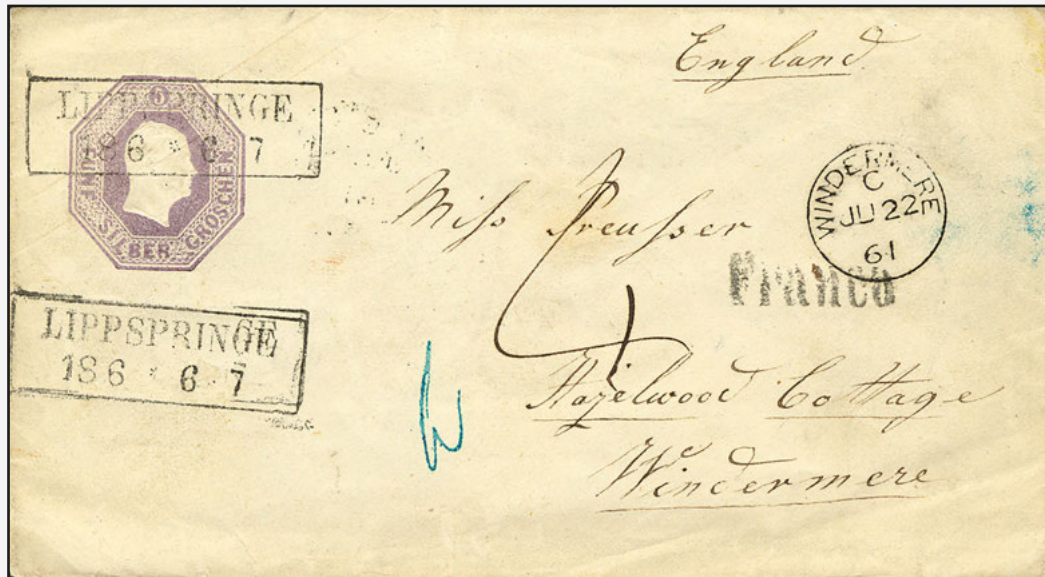 England
LIPPSPRINGE
186 * 6 7
6
FÜNF SILBER GROSCHEN
WINDERMERE
C
JU 22
61
Miss Preusser
Franco
LIPPSPRINGE
186 * 6 7
Hazelwood Cottage
Windermere